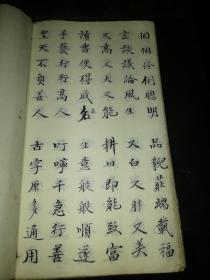 個個伶俐聰明 品貌莊端載福
言談議論風生 又白又胖又美
高大能 耕田即能致富
讀書便得成名 生意般般順遂
手藝行行高人 叮嚀千急行善
皇天不負善人 古字原多通用